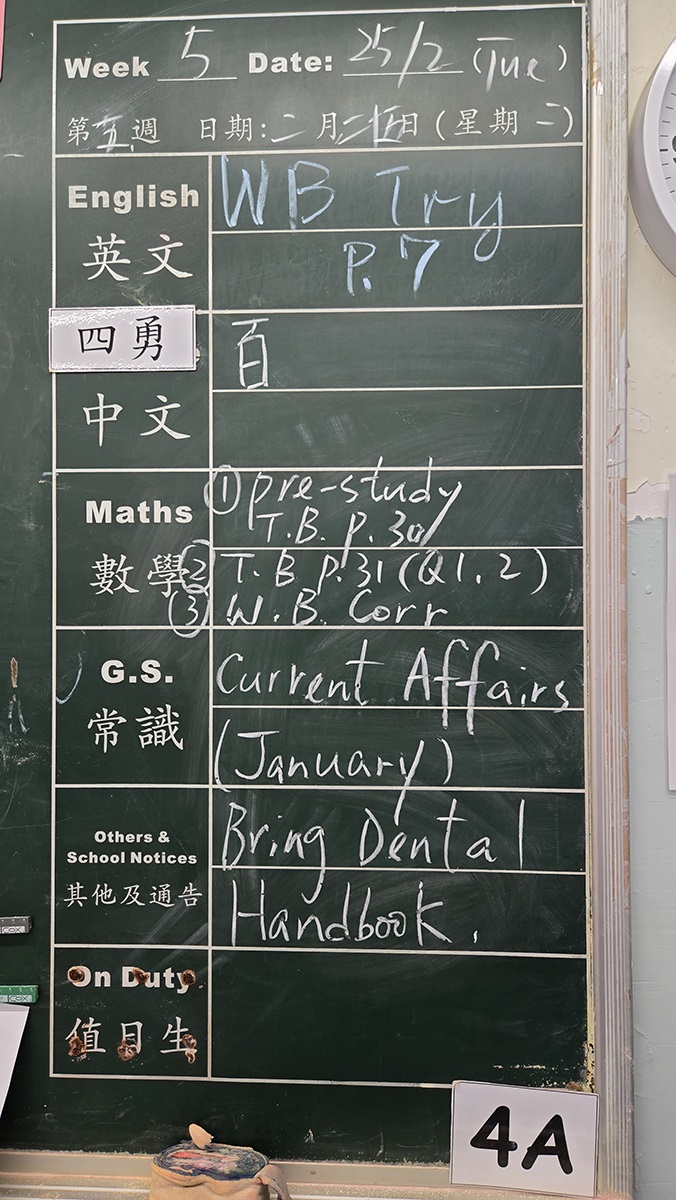 Week 5 Date: 25/2 (Tue)
第五週 日期:二月二十五日(星期二)
English
英文
WB Try
P.7
四勇
中文
百
Maths
數學
① pre-study
T.B. P.30
② T.B P.31 (Q1.2)
③ W.B. Corr
G.S.
常識
Current Affairs
(January)
Others &
School Notices
其他及通告
Bring Dental
Handbook.
On Duty
值日生
4A